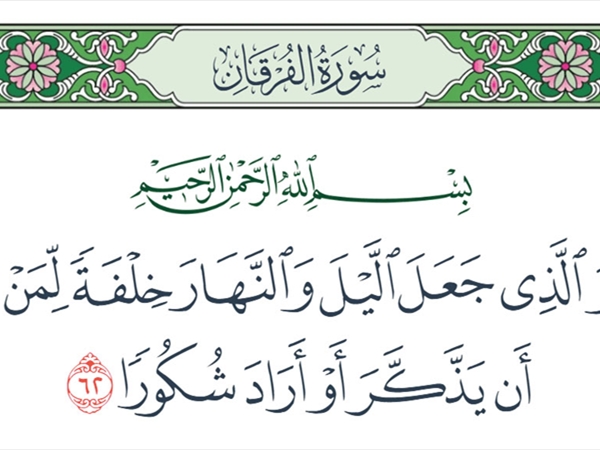 سُورَةُ الفُرْقَانِ
بِسْمِ ٱللَّهِ ٱلرَّحْمَٰنِ ٱلرَّحِيمِ
ٱلَّذِى جَعَلَ ٱلَّيْلَ وَٱلنَّهَارَ خِلْفَةً لِّمَنْ
أَن يَذَّكَّرَ أَوْ أَرَادَ شُكُورًا ٦٢